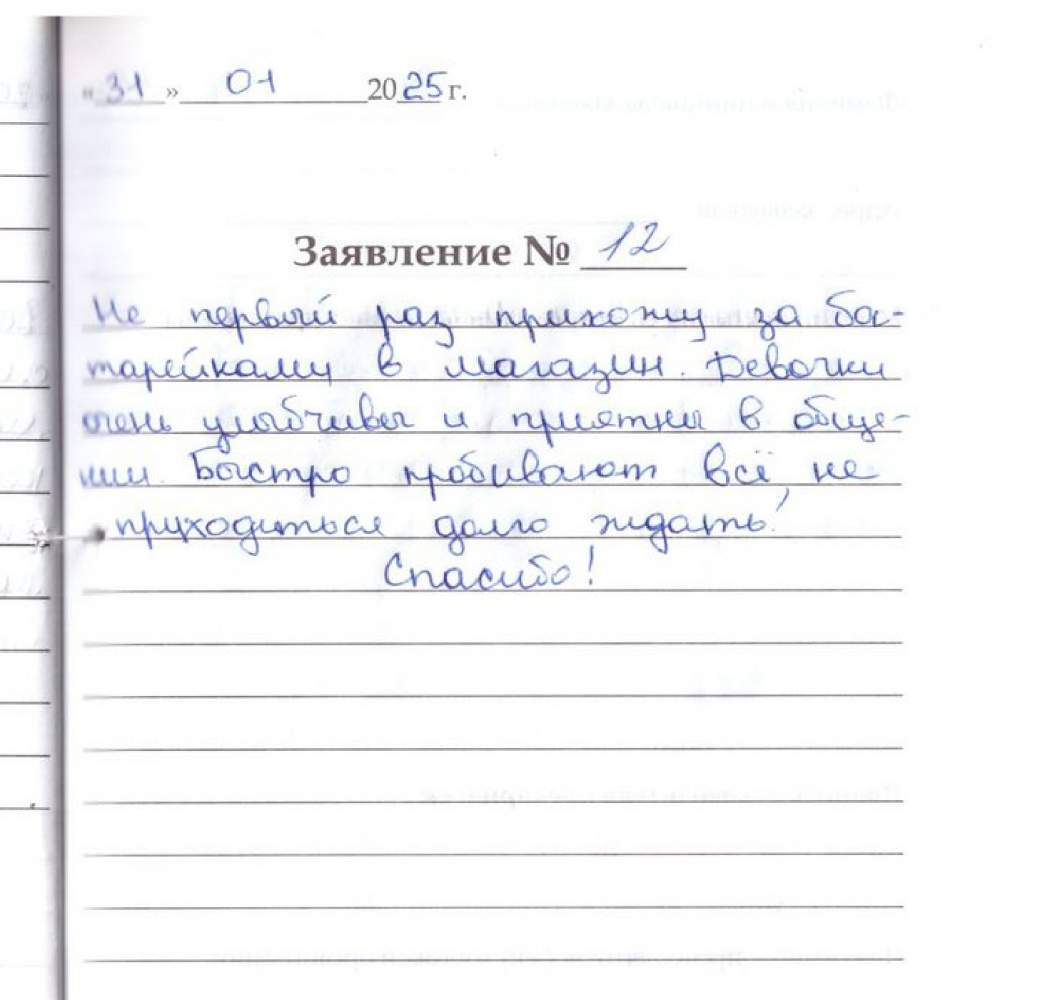 «31» 01 2025 г.
Заявление № 12
Не первый раз прихожу за ба-
тарейками в магазин. Девочки
очень улыбчивы и приятны в обще-
нии. Быстро пробивают всё, не
приходиться долго ждать!
Спасибо!